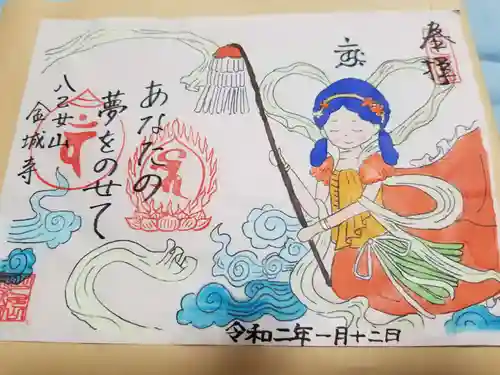 奉拝
あなたの
夢をのせて
八乙女山
金城寺
令和二年一月十二日